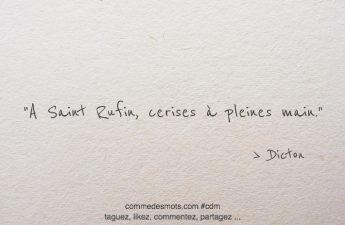 "A Saint Rufin, cerises à pleines main."
> Dicton
commedesmots.com #cdm
taguez, likez, commentez, partagez ...